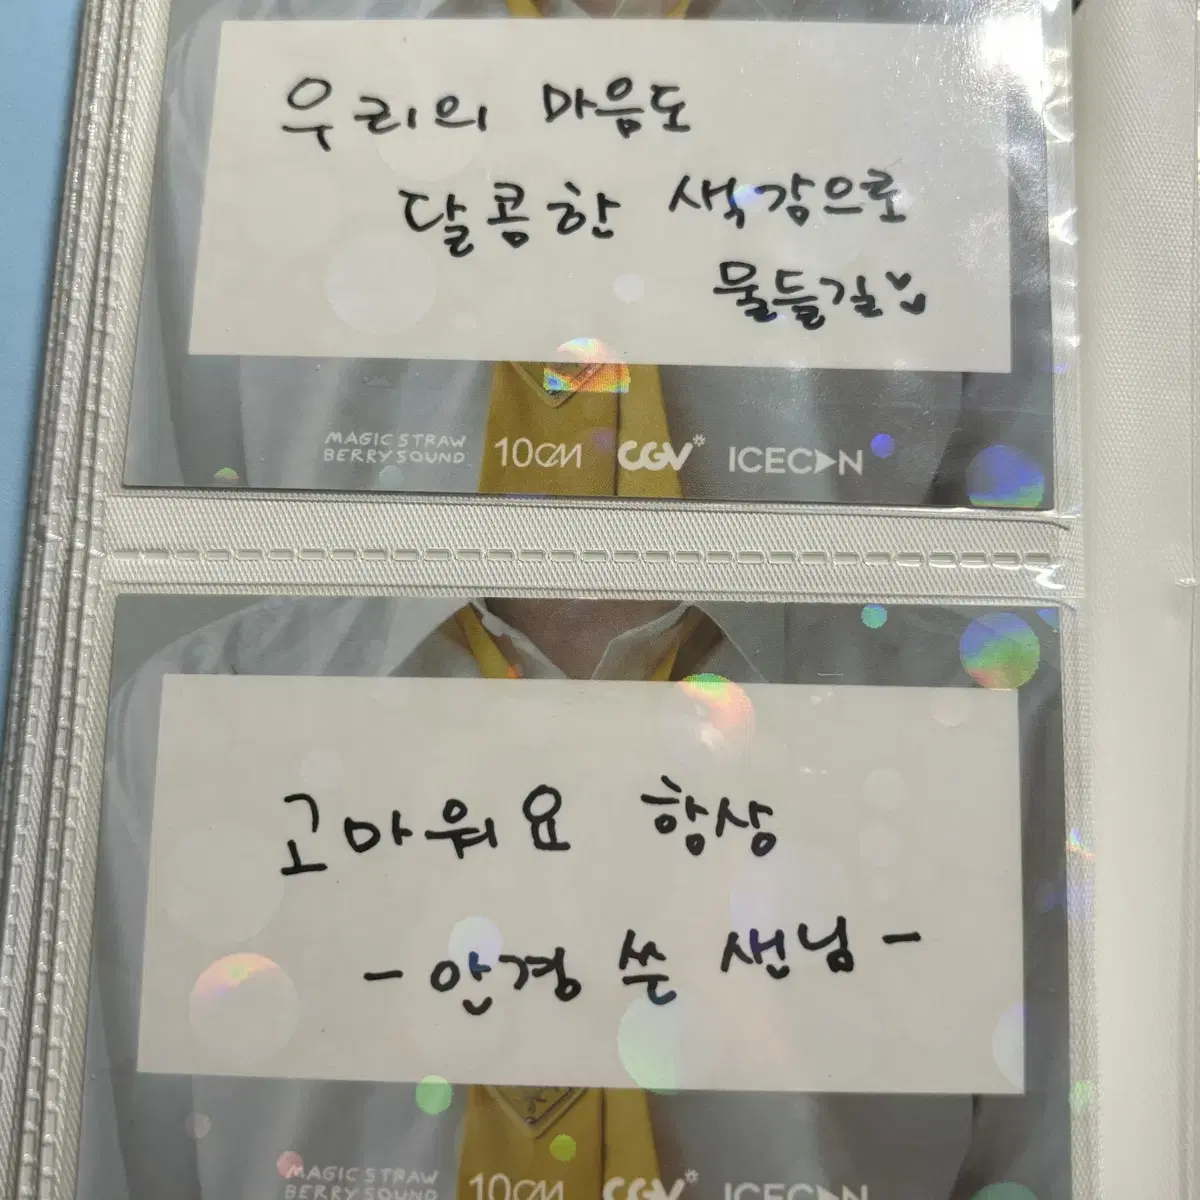 우리의 마음도
달콤한 색감으로
물들길♥
MAGIC STRAW
BERRY SOUND
10CM
CGV*
ICECON
고마워요 항상
- 안경 쓴 샌님 -
MAGIC STRAW
BERRY SOUND
10CM
CGV*
ICECON